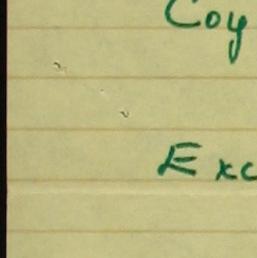 Coy
Exc